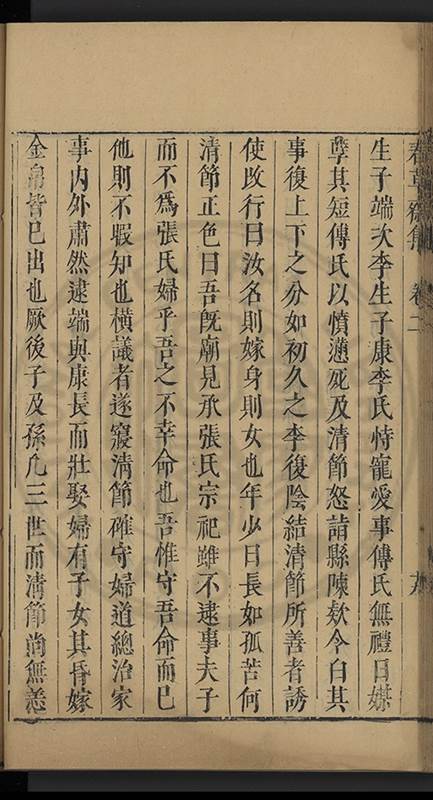 春草齋集 卷二
生子端次李生子康李氏恃寵愛事傅氏無禮日媒
孽其短傅氏以憤懣死及清節怒詣縣陳欵令白其
事復上下之分如初久之李復陰結清節所善者誘
使改行曰汝名則嫁身則女也年少日長如孤苦何
清節正色曰吾旣廟見承張氏宗祀雖不逮事夫子
而不爲張氏婦乎吾之不幸命也吾惟守吾命而已
他則不暇知也橫議者遂寢清節確守婦道總治家
事内外肅然逮端與康長而壯娶婦有子女其昏嫁
金帛皆己出也厥後子及孫凢三世而清節尚無恙